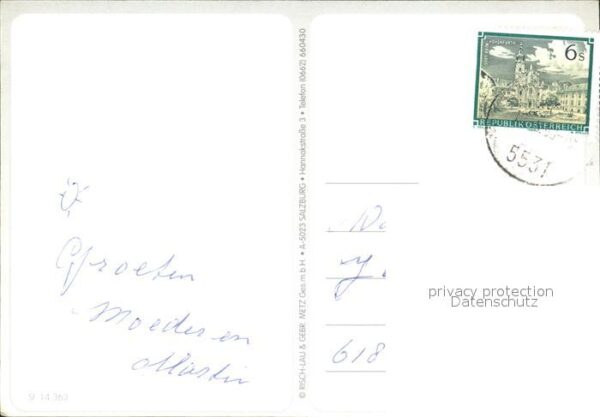 Groeten
Moeder en
Martin
SI 14 363
© RISCH-LAU & GEBR. METZ Ges.m.b.H. • A-5023 SALZBURG • Hannakstraße 3 • Telefon (0662) 660430
6 S
REPUBLIK ÖSTERREICH
5531
618
privacy protection
Datenschutz